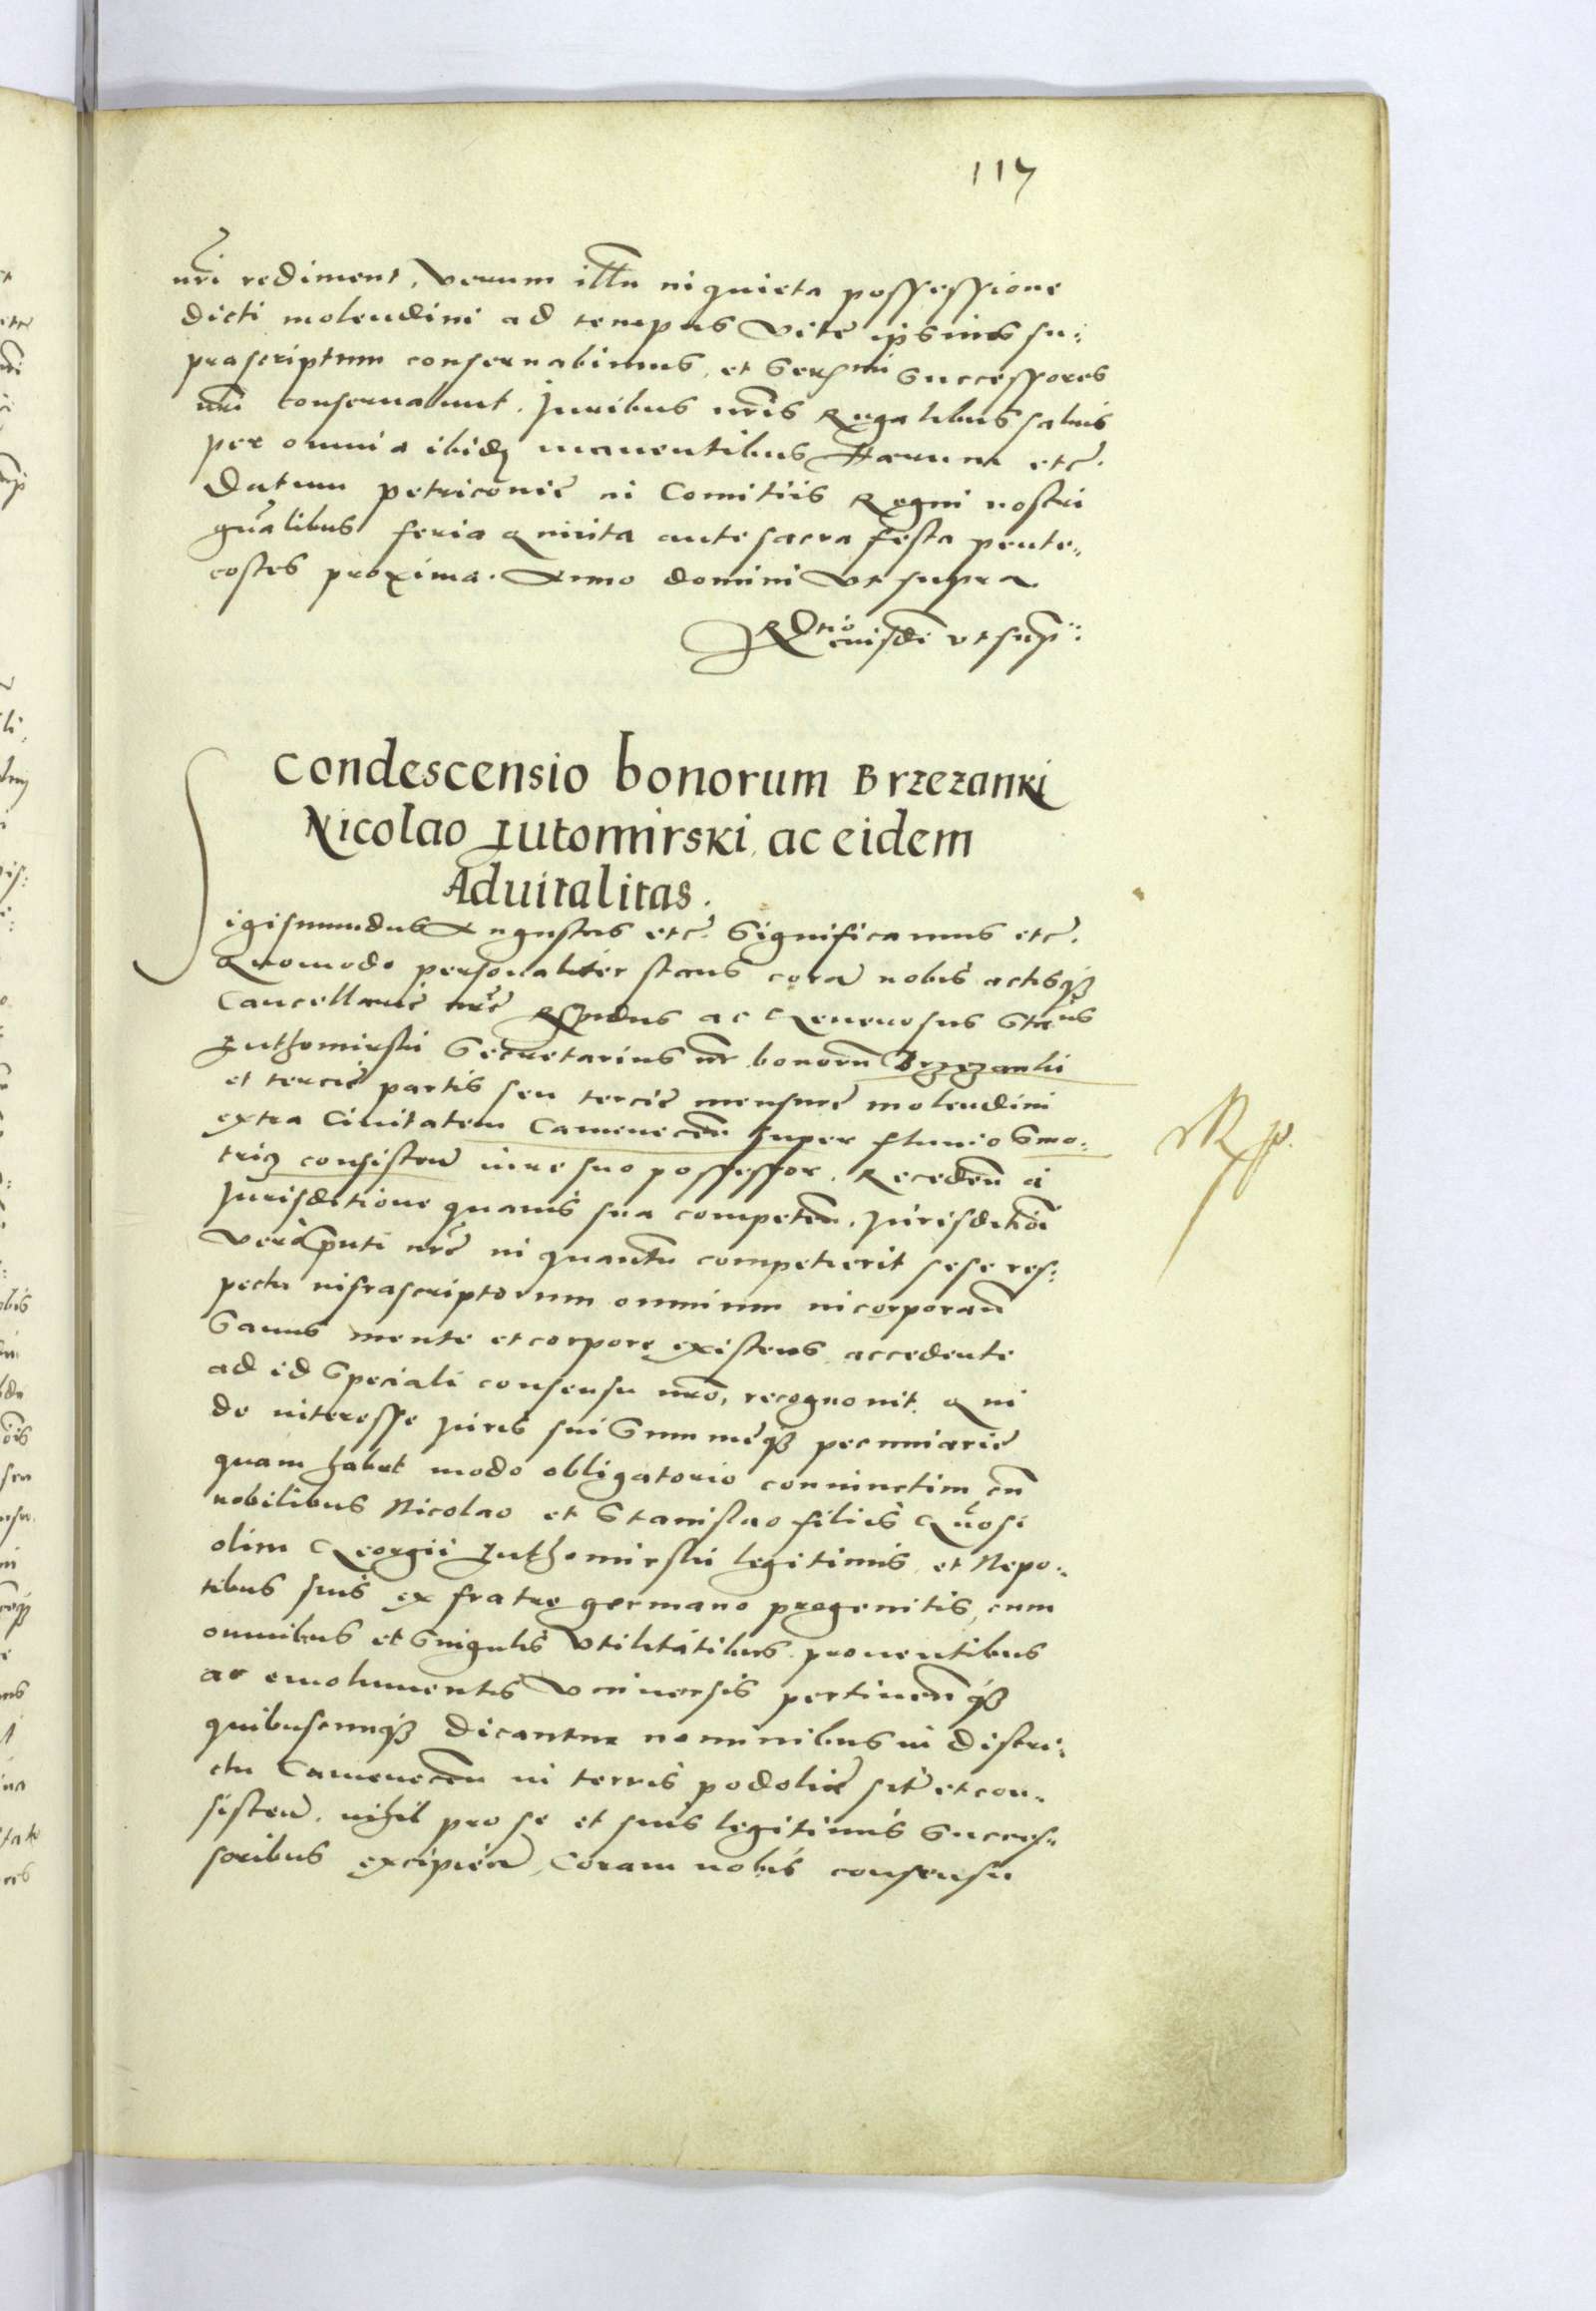 117
nri rediment, verum illu in quieta possessione
dicti molendini ad tempus vite ipsius su:
prascriptum conseruabimus, et Sermi Successores
nri conseruabunt. Juribus nris Regalibus saluis
per omnia ibidem manentibus Harum etc.
Datum petricouie in Comitiis Regni nostri
gnalibus feria quinta ante sacra festa pente„
costes proxima. Anno domini vt supra
Rtio eiusdem vt sup:
Condescensio bonorum Brzezanki
Nicolao Lutomirski, ac eidem
Aduitalitas.
Sigismundus Augustus etc. Significamus etc.
Quomodo personaliter stans cora nobis actisq3
Cancellarie nre Rndus ac Generosus Staus
Luthomirski Secretarius nr bonoru Brzezanki
et tercie partis seu tercie mensure molendini
extra Ciuitatem Camenecen super fluuio Smo:
tricz consisten iure suo possessor. Receden a
Jurisditione quauis sua competen. Jurisditioni
vero pnti nre in quantu competierit sese res:
pectu infrascriptorum omnium incorporan
Sanus mente et corpore existens accedente
ad id Speciali consensu nro, recognouit. Qui
de interesse Juris sui Summeq3 pecuniarie
quam habet modo obligatorio coniunctim cu
nobilibus Nicolao et Stanislao filiis Gnosi
olim Georgii Luthomirski legitimis, et Nepo„
tibus suis ex fratre germano progenitis, cum
omnibus et Singulis vtilitatibus prouentibus
ac emolumentis vniuersis pertinenq3
quibuscunq3 dicantur nominibus in distri:
ctu Camenecen in terris podolie sit et con„
sisten. nihil pro se et suis legitimis Succes„
soribus excipien, Coram nobis consensu